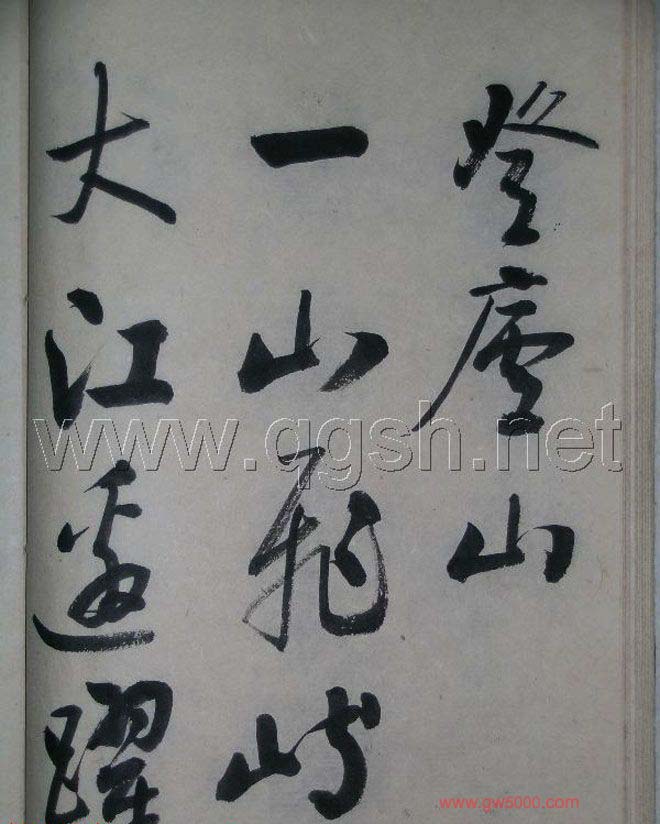 登廬山
一山飛峙
大江邊躍
www.qgsh.net
www.gw5000.com